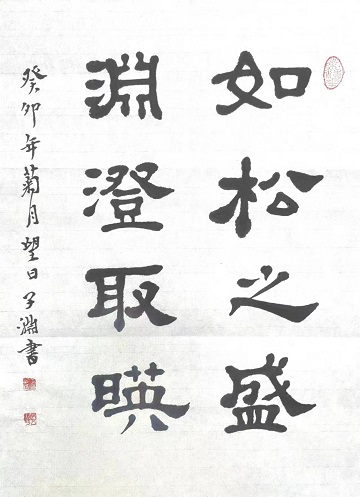 如松之盛
淵澄取暎
癸卯年菊月望日子淵書